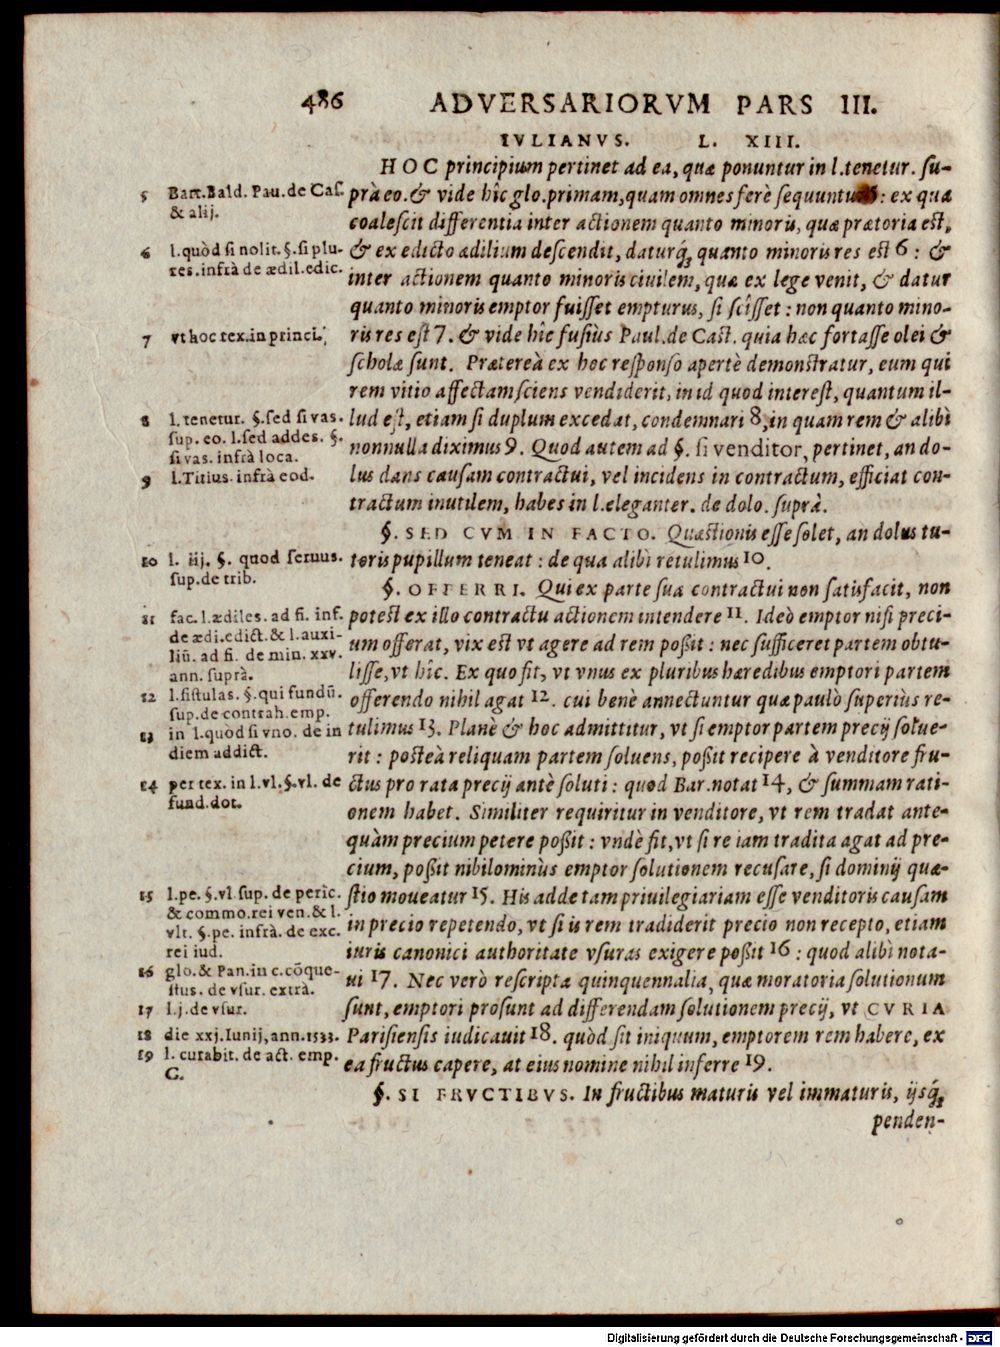 486 ADVERSARIORVM PARS III.
IVLIANVS. L. XIII.
HOC principium pertinet ad ea, quæ ponuntur in l.tenetur. ſu-
præeo.& vide hîc glo.primam,quam omnes ferè ſequuntur : ex qua
coaleſcit differentia inter actionem quanto minoris, quæ prætoria eſt,
& ex edicto ædilium deſcendit, daturq́; quanto minoris res eſt 6 : &
inter actionem quanto minoris ciuilem, quæ ex lege venit, & datur
quanto minoris emptor fuiſſet empturus, ſi ſciſſet : non quanto mino-
ris res eſt 7. & vide hîc fuſiùs Paul.de Caſt. quia hæc fortaſſe olei &
ſcholæ ſunt. Prætereà ex hoc reſponſo apertè demonſtratur, eum qui
rem vitio affectam ſciens vendiderit, in id quod intereſt, quantum il-
lud eſt, etiam ſi duplum excedat, condemnari 8, in quam rem & alibi
nonnulla diximus 9. Quod autem ad §. ſi venditor, pertinet, an do-
lus dans cauſam contractui, vel incidens in contractum, efficiat con-
tractum inutilem, habes in l.eleganter. de dolo. ſuprà.
§. SED CVM IN FACTO. Quæſtionis eſſe ſolet, an dolus tu-
toris pupillum teneat : de qua alibi retulimus 10.
§. OFFERRI. Qui ex parte ſua contractui non ſatisfacit, non
poteſt ex illo contractu actionem intendere 11. Ideò emptor niſi preci-
um offerat, vix eſt vt agere ad rem poßit : nec ſufficeret partem obtu-
liſſe, vt hîc. Ex quo fit, vt vnus ex pluribus hæredibus emptori partem
offerendo nihil agat 12. cui benè annectuntur quæ paulò ſuperiùs re-
tulimus 13. Planè & hoc admittitur, vt ſi emptor partem precij ſolue-
rit : poſteà reliquam partem ſoluens, poßit recipere à venditore fru-
ctus pro rata precij antè ſoluti : quod Bar.notat 14, & ſummam rati-
onem habet. Similiter requiritur in venditore, vt rem tradat ante-
quàm precium petere poßit : vndè fit, vt ſi re iam tradita agat ad pre-
cium, poßit nihilominùs emptor ſolutionem recuſare, ſi dominij quæ-
ſtio moueatur 15. His adde tam priuilegiariam eſſe venditoris cauſam
in precio repetendo, vt ſi is rem tradiderit precio non recepto, etiam
iuris canonici authoritate vſuras exigere poßit 16 : quod alibi nota-
ui 17. Nec verò reſcripta quinquennalia, quæ moratoria ſolutionum
ſunt, emptori proſunt ad differendam ſolutionem precij, vt CVRIA
Pariſienſis iudicauit 18. quòd ſit iniquum, emptorem rem habere, ex
ea fructus capere, at eius nomine nihil inferre 19.
§. SI FRVCTIBVS. In fructibus maturis vel immaturis, ijsq́;
penden-
5 Bart.Bald. Pau.de Caſ.
& alij.
6 l.quòd ſi nolit.§.ſi plu-
res.infrà de ædil.edic.
7 vt hoc tex.in princi.
8 l. tenetur. §.ſed ſi vas.
ſup. eo. l.ſed addes. §.
ſi vas. infrà loca.
9 l.Titius. infrà eod.
10 l. iij. §. quod ſeruus.
ſup.de trib.
11 fac.l.ædiles. ad fi. inf.
de ædi.edict.& l.auxi-
liũ. ad fi. de min. xxv.
ann. ſuprà.
12 l.fiſtulas. §.qui fundũ.
ſup.de contrah.emp.
13 in l.quòd ſi vno. de in
diem addict.
14 per tex. in l.vl.§.vl. de
fund.dot.
15 l.pe. §.vl.ſup. de peric.
& commo.rei ven.& l.
vlt. §.pe. infrà. de exc.
rei iud.
16 glo.& Pan.in c.cõque-
ſtus. de vſur. extrà.
17 l.j.de vſur.
18 die xxj.Iunij,ann.1533.
19 l. curabit. de act. emp.
C.
Digitalisierung gefördert durch die Deutsche Forschungsgemeinschaft - DFG